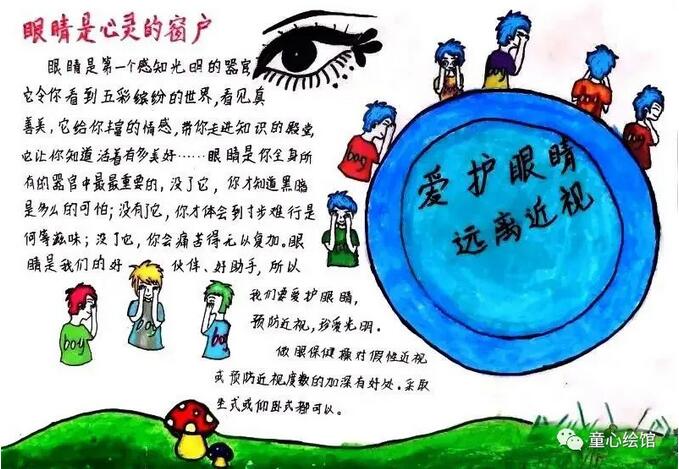 眼睛是心灵的窗户
眼睛是第一个感知光明的器官
它令你看到五彩缤纷的世界,看见真
善美,它给你丰富的情感,带你走进知识的殿堂
也让你知道活着有多美好……眼睛是你全身所
有的器官中最最重要的,没了它,你才知道黑暗
是多么的可怕;没有了它,你才体会到寸步难行是
何等滋味;没了它,你会痛苦得无以复加。眼
睛是我们的好 伙伴、好助手,所以
我们要爱护眼睛,
预防近视,珍爱光明。
做眼保健操对假性近视
或预防近视度数的加深有好处。采取
坐式或仰卧式都可以。
爱护眼睛
远离近视
boy
boy
boy
boy
boy
童心绘馆